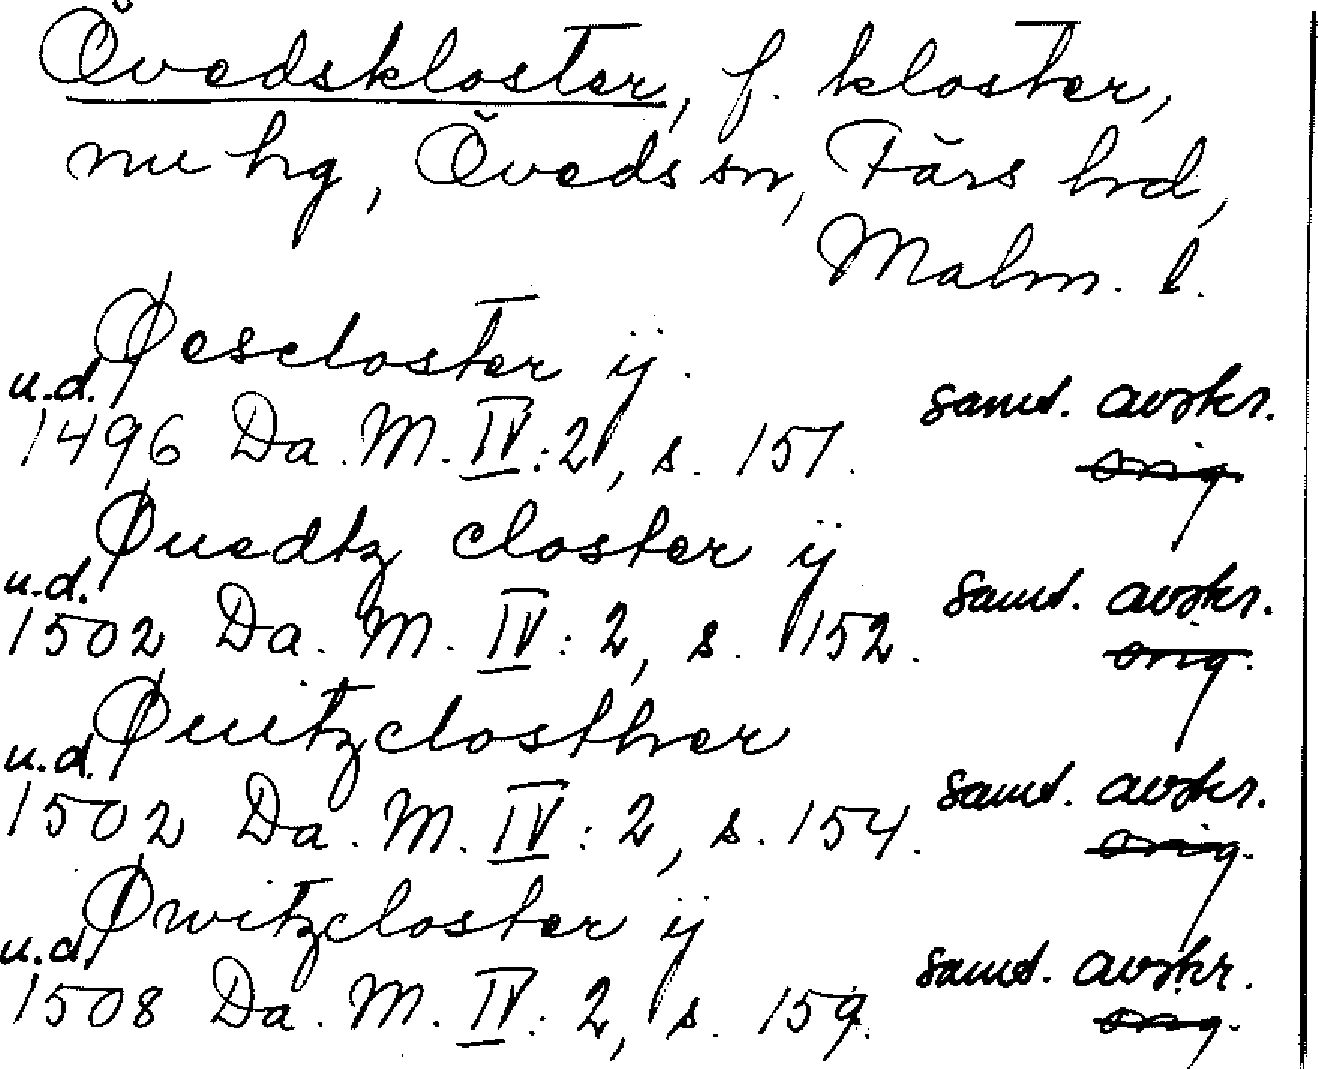 Övedskloster, f. kloster,
nu hg, Öveds sn, Färs hrd,
Malm. l.
Øescloster ij.
u.d. samt. avskr.
1496 Da. M. IV:2, s. 151. orig.
Øuedtz closter ij
u.d. samt. avskr.
1502 Da. M. IV: 2, s. 152. orig.
Øuitzclosther
u.d. samt. avskr.
1502 Da. M. IV: 2, s. 154. orig.
Øwitzcloster ij
u.d. samt. avskr.
1508 Da. M. IV: 2, s. 159. orig.